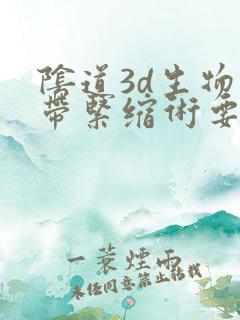 陰道3d生物
帶緊縮術要
一蓑煙雨
未经同意禁止转载